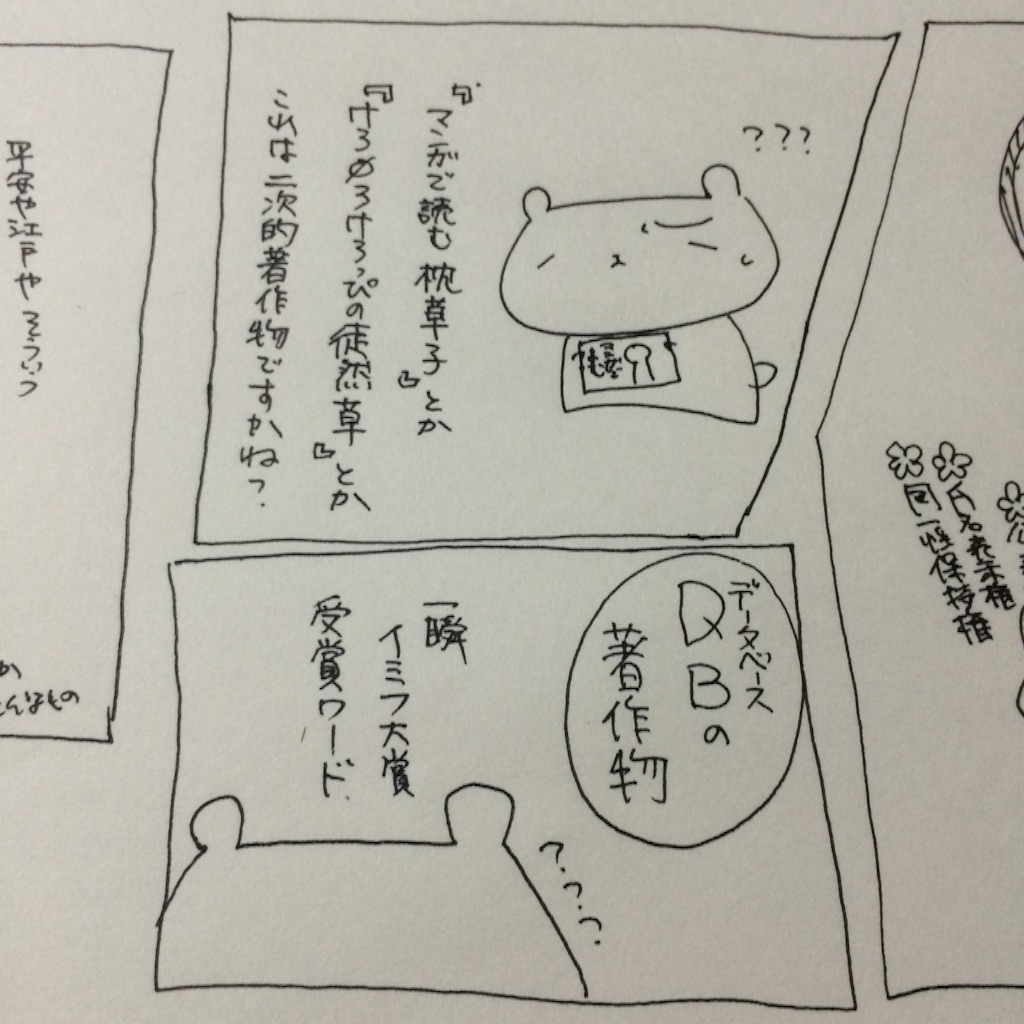 氏名表示権
同一性保持権
???
『マンガで読む枕草子』とか
『けろけろけろっぴの徒然草』とか
これは二次的著作物ですかね?
データベース
DBの
著作物
一瞬
イミフ大賞
受賞ワード
???
平安や江戸やそういう